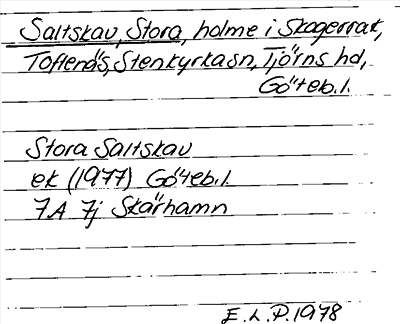 Saltskav, Stora, holme i Skagerrak,
Toftenäs, Stenkyrka sn, Tjörns hd,
Göteb.l.
Stora Saltskav
ek (1977) Göteb.l.
7A 7j Skärhamn
E.L.P. 1978